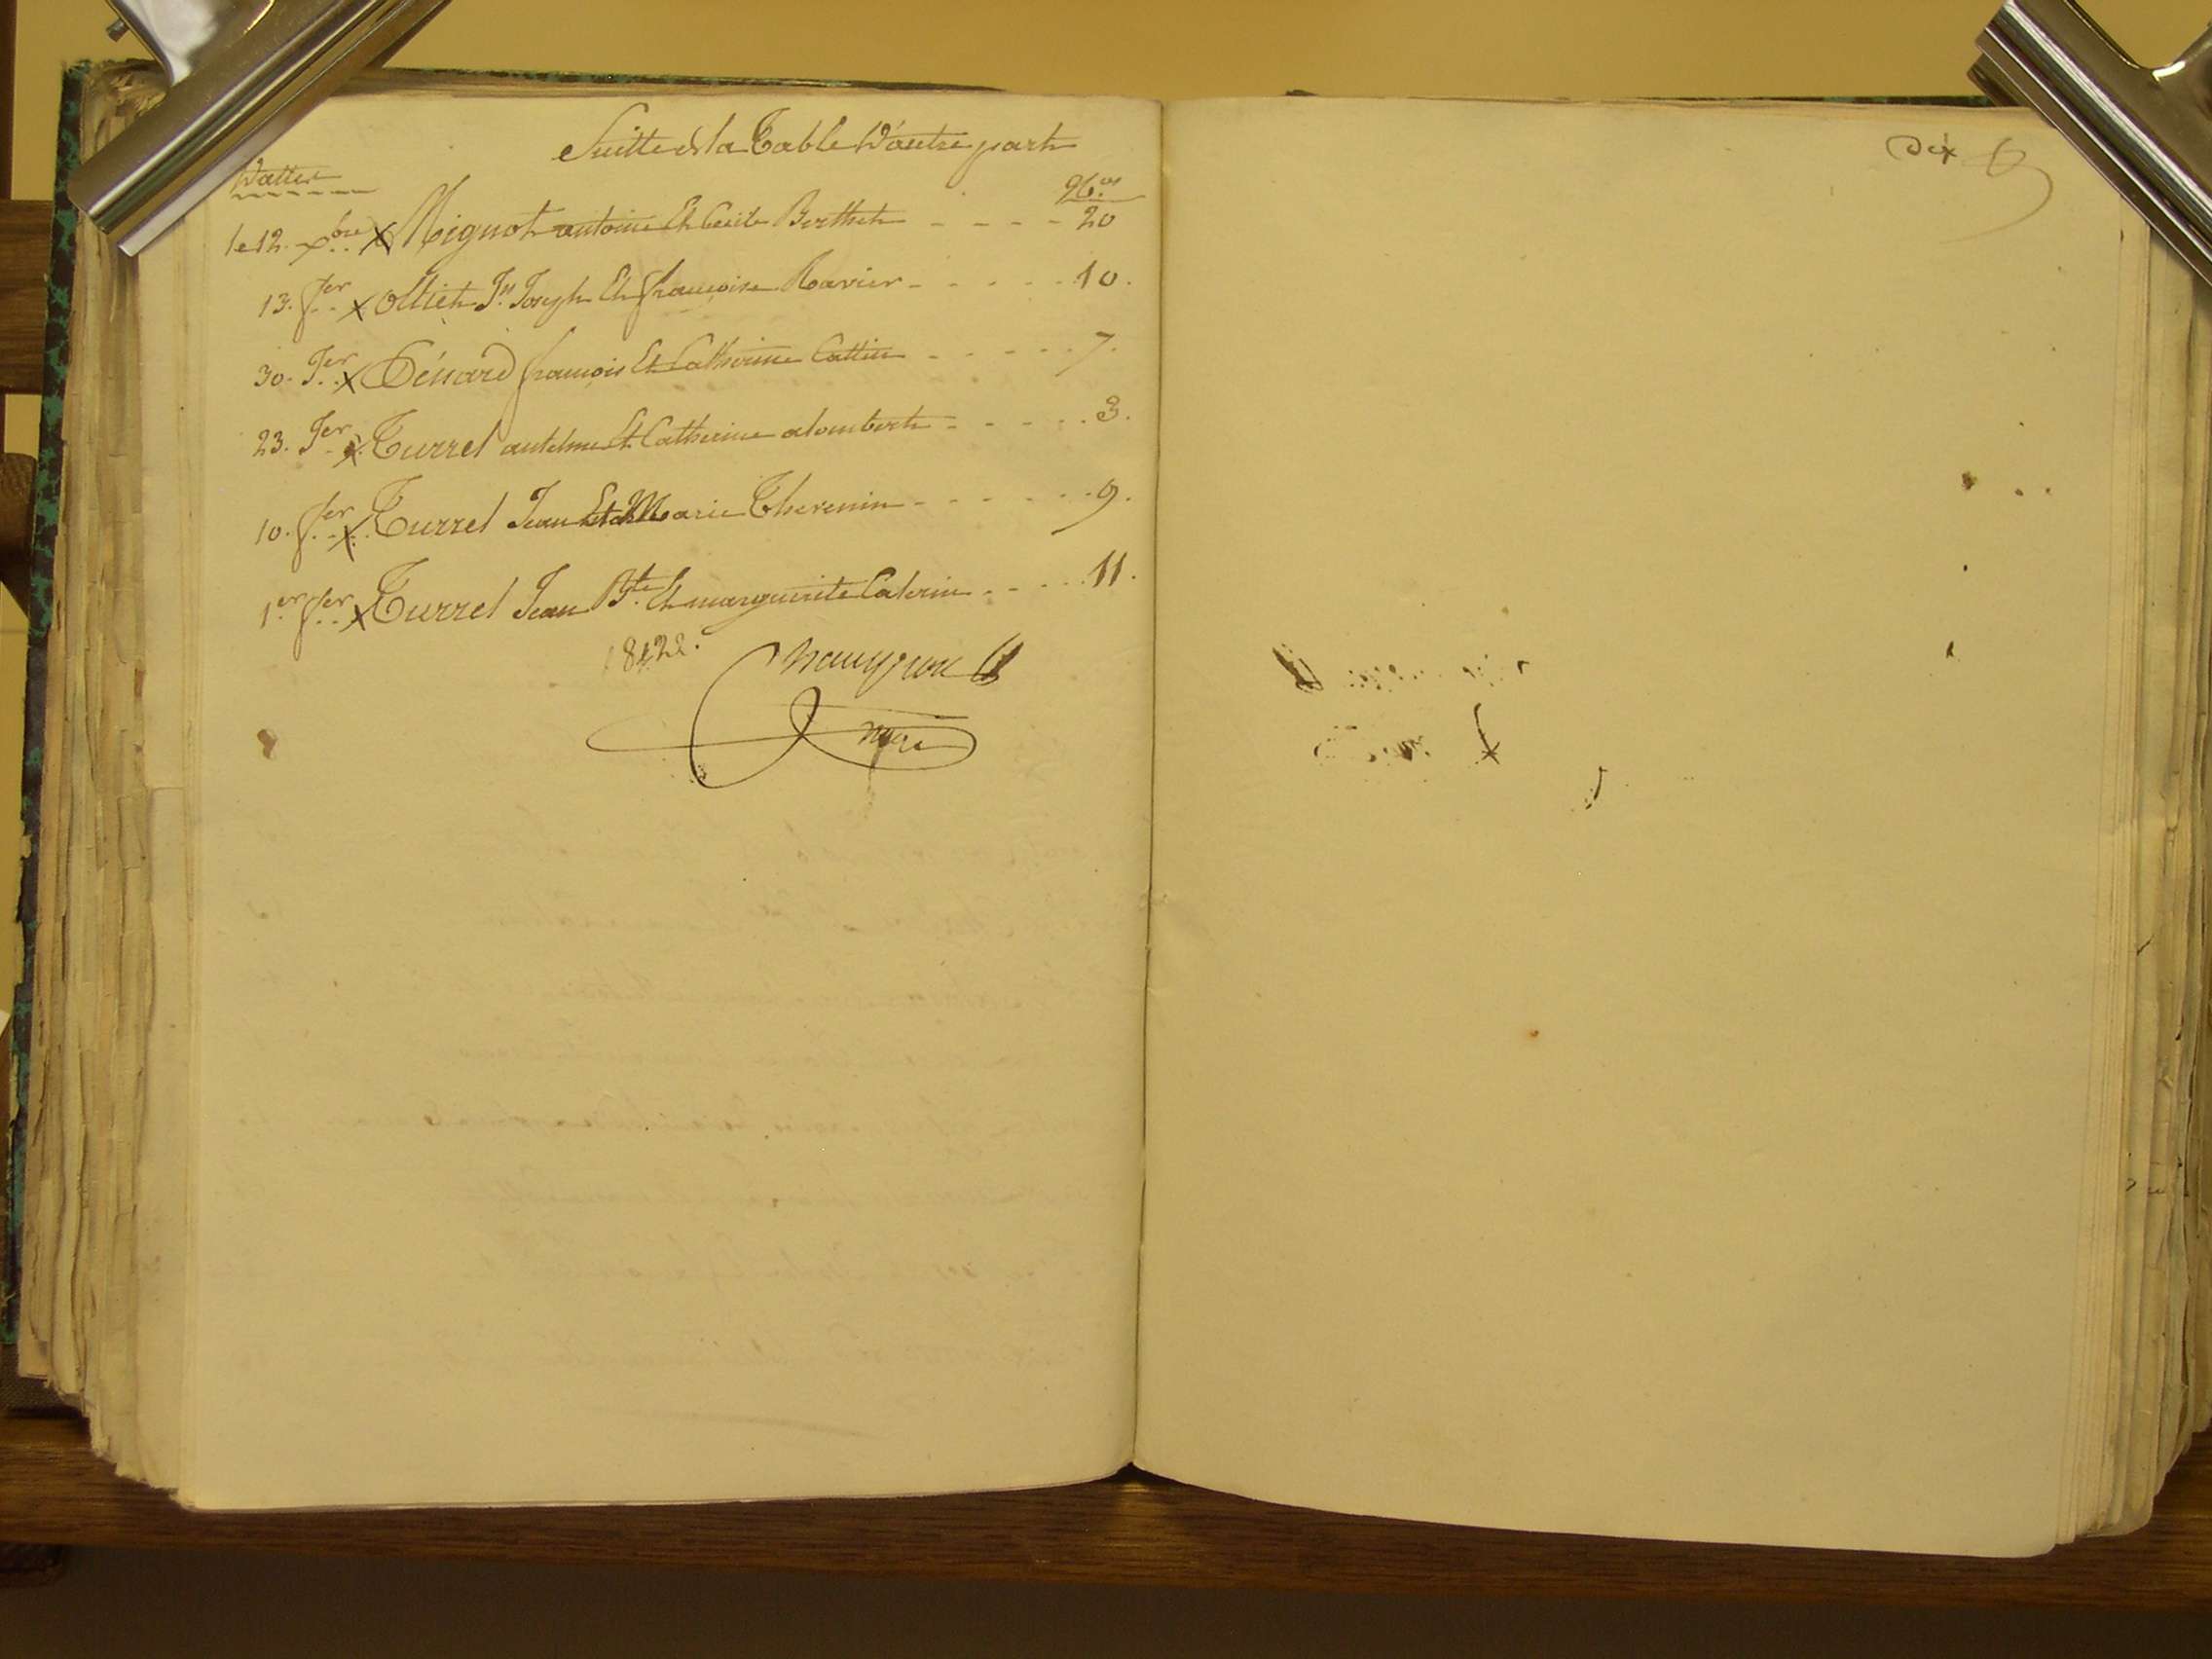 Suitte de la Table D'autre part
Dattes
N.os
le 12. xbre x Mignot antoine Et Cecile Berthet - - - - 20
13. fer x Olliet Jn Joseph Et françoise Ravier - - - - - 10.
30. Jer x Pénard françois Et Catherine Cattin - - - - - 7.
23. Jer x Turrel antelme Et Catherine alombert - - - - - 3.
10. fer x Turrel Jean Et Marie Thevenin - - - - - - 9.
1er fer x Turrel Jean Bte Et marguerite Caterin - - - - 11.
1822.
mre
Dix